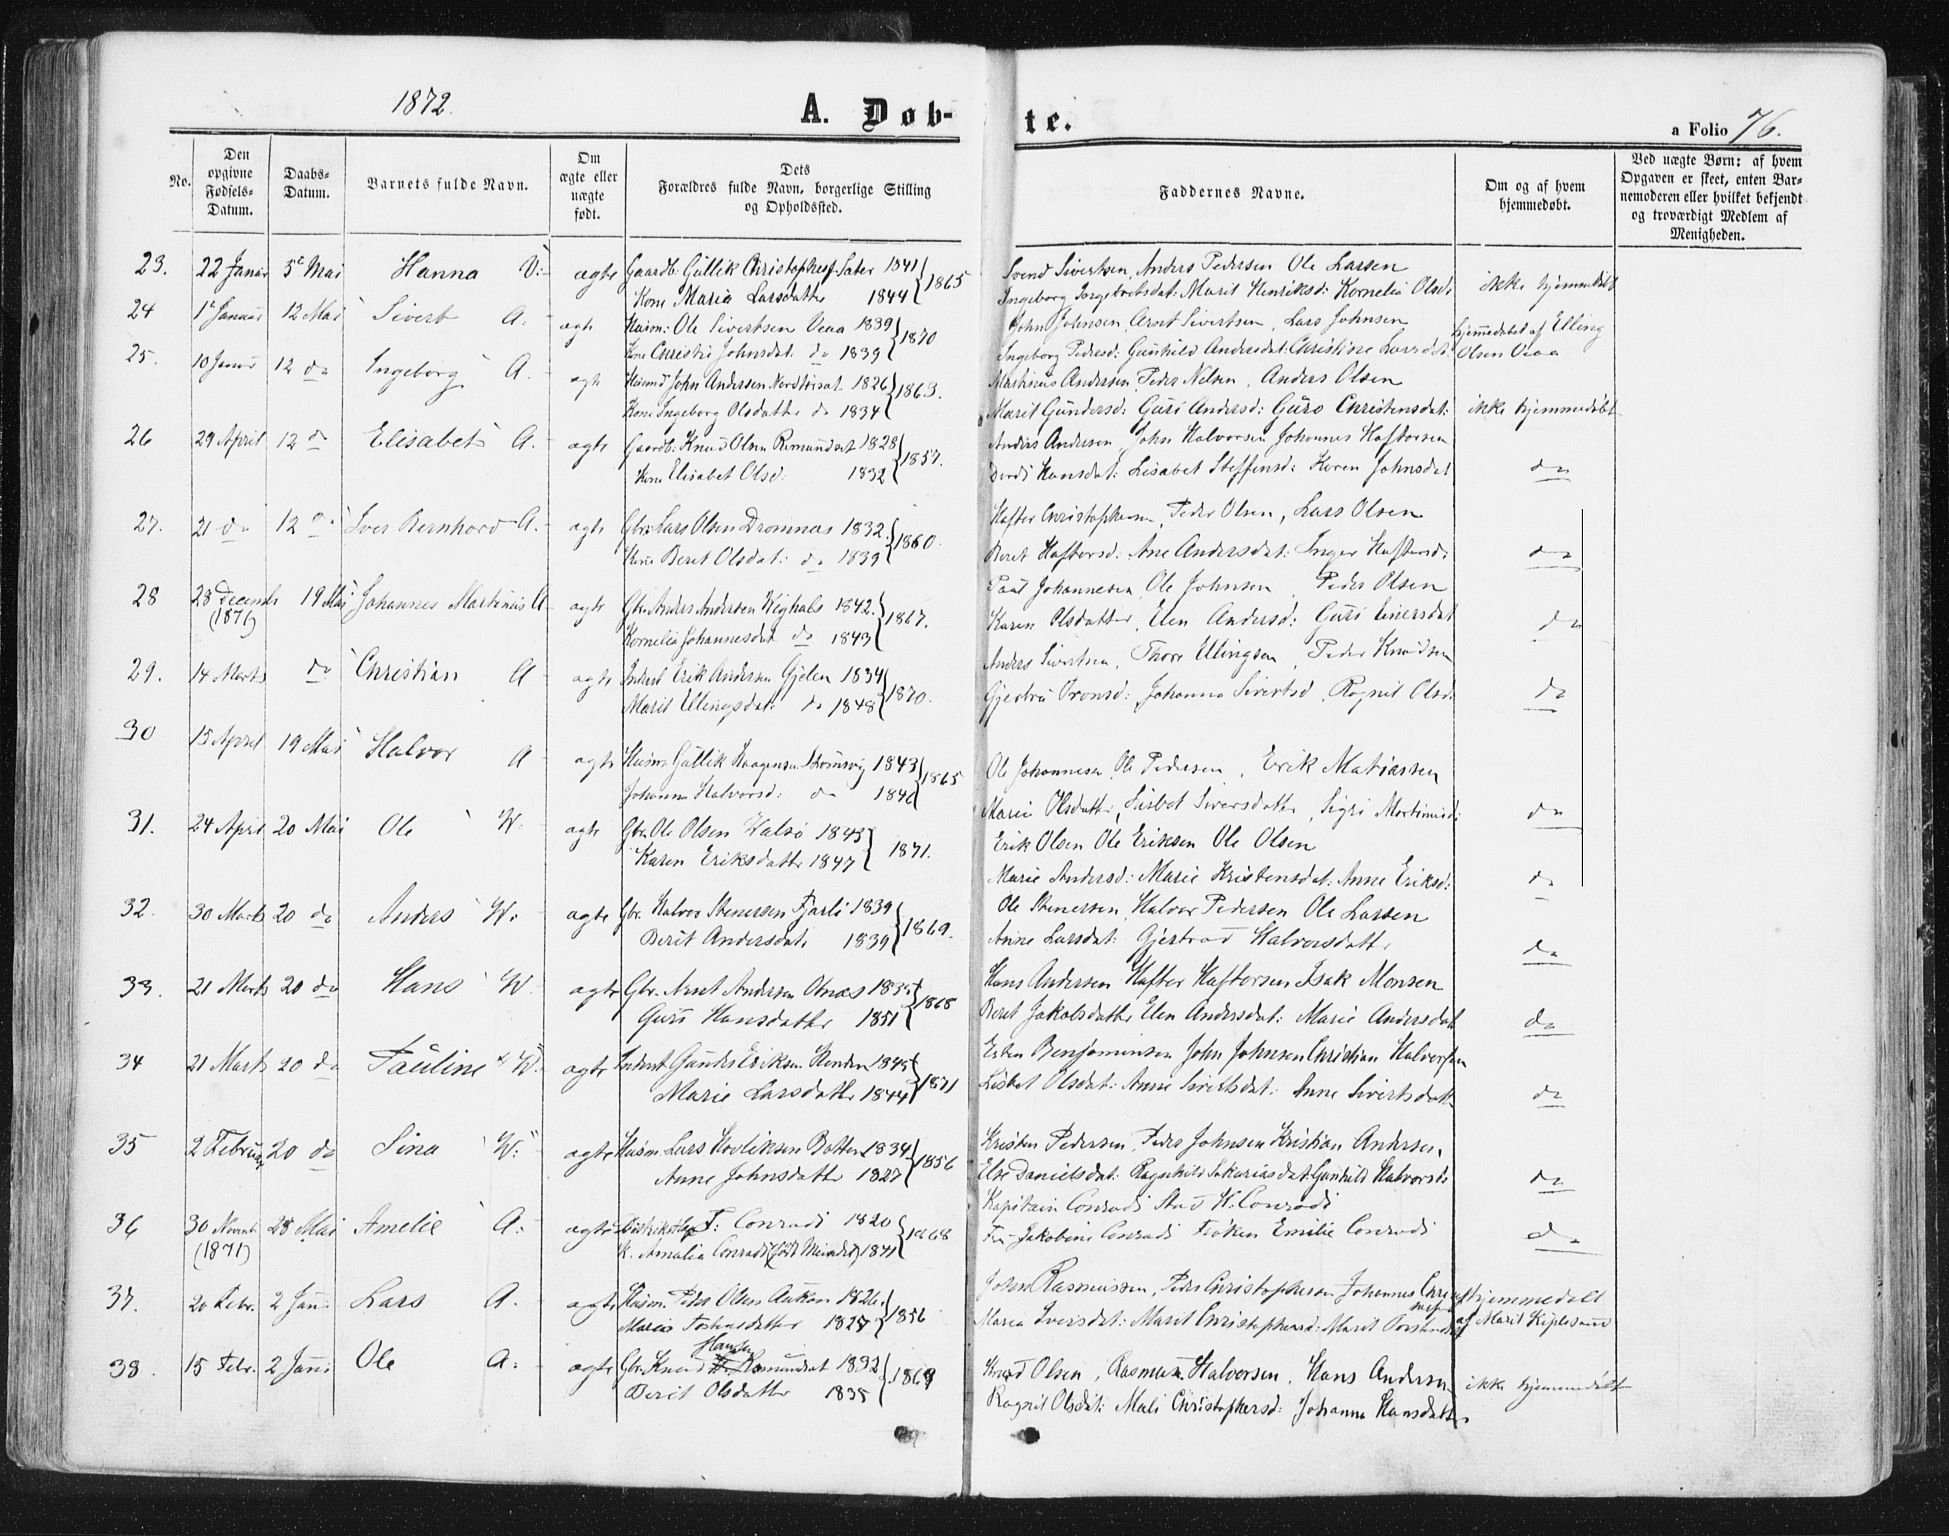 1872.
A. Døb-
te.
a Folio 76.
No.
Den opgivne Fødsels-Datum.
Daabs-Datum.
Barnets fulde Navn.
Om ægte eller uægte født.
Dets Forældres fulde Navn, borgerlige Stilling og Opholdssted.
Faddernes Navne.
Om og af hvem hjemmedøbt.
Ved uægte Børn: af hvem Opgaven er skeet, enten Barnemoderen eller hvilket bekjendt og troværdigt Medlem af Menigheden.
23. 22 Januar 5te Mai Hanna V: ægte Gaardb: Gullik Christophers. Sæter 1841 } 1865 Svend Sivertsen, Anders Pedersen Ole Larsen
Kone Maria Larsdatter 1844 Ingeborg Ingebretsdat: Marit Henriksd: Kornelia Olsd: ikke hjemmedøbt
24 1te Januar 12 Mai Sivert A. ægte Husm: Ole Sivertsen Veaa 1839 } 1870 John Johnsen, Arnt Sivertsen, Lars Johnsen hjemmedøbt af Elling
Kone Christie Johnsdat. do 1839 Ingeborg Pedersd: Gunhild Andersdat: Christine Larsdt. Olsen Veaa
25. 10 Januar 12 do Ingeborg A. ægte Husmd John Andersen 1826 } 1863. Martinus Andersen, Peder Nelsen, Anders Olsen
Kone Ingeborg Olsdatter do 1834 Marit Gundersd: Guri Andersd: Guro Christensdat: ikke hjemmedøbt
26 29 April 12 do Elisabet A. ægte Gaardb: Knud Olsen Romundset 1828 } 1857. Anders Andersen, John Halvorsen Johannes Haftorsen
Kone Elisabet Olsd: 1832 Dordi Hansdat: Lisabet Steffensd: Karen Johnsdat do
27. 21 do 12 do Iver Bernhard A. ægte Gbr: Lars Olsen Dromnæs 1832. } 1860. Hafter Christophersen, Peder Olsen, Lars Olsen
Kone Beret Olsdat: do 1839 Beret Haftorsd: Ane Andersdat: Inger Haftorsd: do
28 28 Decemb (1871) 19 Mai Johannes Martinus A ægte Gbr. Anders Andersen 1842. } 1867. Paul Johannesen, Ole Johnsen, Peder Olsen
Kornelia Johannesdat do 1843 Karen Olsdatter, Elen Andersd: Guri Einersdat do
29. 14 Marts do Christian A ægte Inderst Erik Andersen Gjelen 1834 } 1870. Anders Sivertsen, Thore Ellingsen, Peder Knudsen
Marit Ellingsdat: do 1848 Gjertru Tronsd: Johanna Sivertsd, Ragnil Olsd. do
30 15 April 19 Mai Halvor A ægte Husm Gullik Haagensen 1843 } 1865 Ole Johannesen, Ole Pedersen, Erik Matiassen
Johanna Halvorsd: do 1846 Marie Olsdatter, Lisbet Siversdatter, Sigri Martinusd: do
31. 24 April 20 Mai Ole W. ægte Gbr. Ole Olsen Valsø 1843 } 1871. Erik Olsen Ole Eriksen Ole Olsen
Karen Eriksdatter 1847 Marie Andersd: Marie Kristensdat: Anne Eriksd: do
32. 30 Marts 20 do Anders W. ægte Gbr. Halvor Stenersen Fjærli 1839 } 1869. Ole Stenersen, Halvor Pedersen Ole Larsen
Berit Andersdat: 1839 Anne Larsdat: Gjertrud Halvorsdatter do
33. 21 Marts 20 do Hans W ægte Gbr. Arnt Andersen Otnæs 1835 } 1868 Hans Andersen Hafter Haftorsen Isak Monsen
Guri Hansdatter 1851 Beret Jakobsdatter Elen Andersdat: Marie Andersdat do
34 21 Marts 20 do Pauline W. ægte Inderst Gunder Eriksen Henden 1845 } 1871 Esten Benjaminsen John Johnsen Christian Halvorsen
Marie Larsdatter 1844 Lisbet Olsdat: Anne Sivertsdat: Anne Sivertsdatter do
35 2 Februar 20 do Sina W. ægte Husm. Lars Botten 1834 } 1856 Kristen Pedersen, Peder Johnsen Kristian Andersen,
Anne Johnsdatter 1827 Else Danielsdat: Ragnhild Sakariasdat: Gunhild Halvorsd: do
36 30 Novemb (1871) 28 Mai Amelie A. ægte F: Conradi 1820 } 1868 Kapitain Conradi Stud H. Conradi
K. Amalia Conradi (født ) 1841 Fru Jakobine Conradi Frøken Emilie Conradi do
37. 20 Febr. 2 Juni Lars A. ægte Husm. Peder Olsen Aukan 1826 } 1856 John Rasmussen, Peder Christophersen Johannes Chri hjemmedøbt
Maria Torstensdatter 1827 Maria Iversdat: Marit Christophersd: Marit Torstensdat af Marit
38. 15 Febr. 2 Juni Ole A. ægte Gbr. Knud Hansen Romundset 1832 } 1869 Knud Olsen, Rasmus Halvorsen, Hans Andersen
Berit Olsdatter 1835 Ragnil Olsdat: Mali Christophersd: Johanna Hansdatter. ikke hjemmedøbt